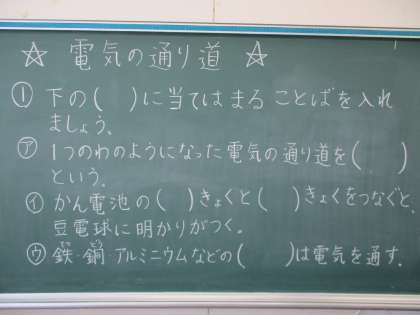 ☆ 電気の通り道 ☆
① 下の(　)に当てはまることばを入れ
ましょう。
㋐ 1つのわのようになった電気の通り道を(　)
という。
㋑ かん電池の(　)きょくと(　)きょくをつなぐと、
豆電球に明かりがつく。
㋒ 鉄・銅・アルミニウムなどの(　)は電気を通す。